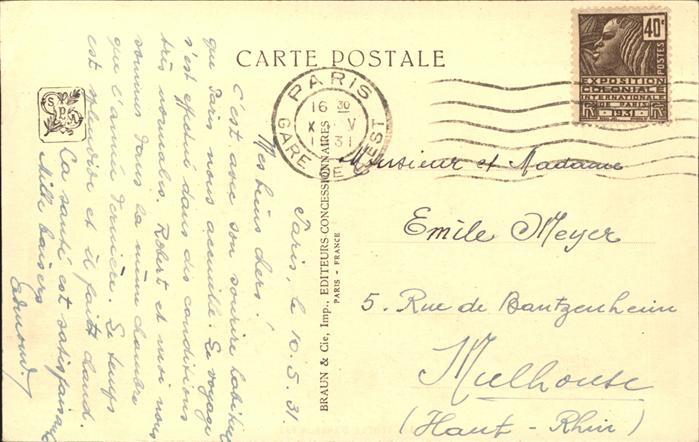 CARTE POSTALE
40c
POSTES
EXPOSITION
COLONIALE
INTERNATIONALE
DE PARIS
1931
PARIS
16 30
X V
31
GARE DE EST
SPDA
BRAUN & Cie, Imp., EDITEURS-CONCESSIONNAIRES
PARIS - FRANCE
Paris, le 10.5.31.
Mes biens chers!
C'est avec son sourire habituel
que Paris nous accueille. Le voyage
s'est effectué dans des conditions
très normales. Robert et moi nous
sommes dans la même chambre
que l'année dernière. Le temps
est splendide et il fait chaud.
La santé est satisfaisante
Mille baisers
Edmond.
Monsieur et Madame
Emile Meyer
5. Rue de Bantzenheim
Mulhouse
(Haut-Rhin)